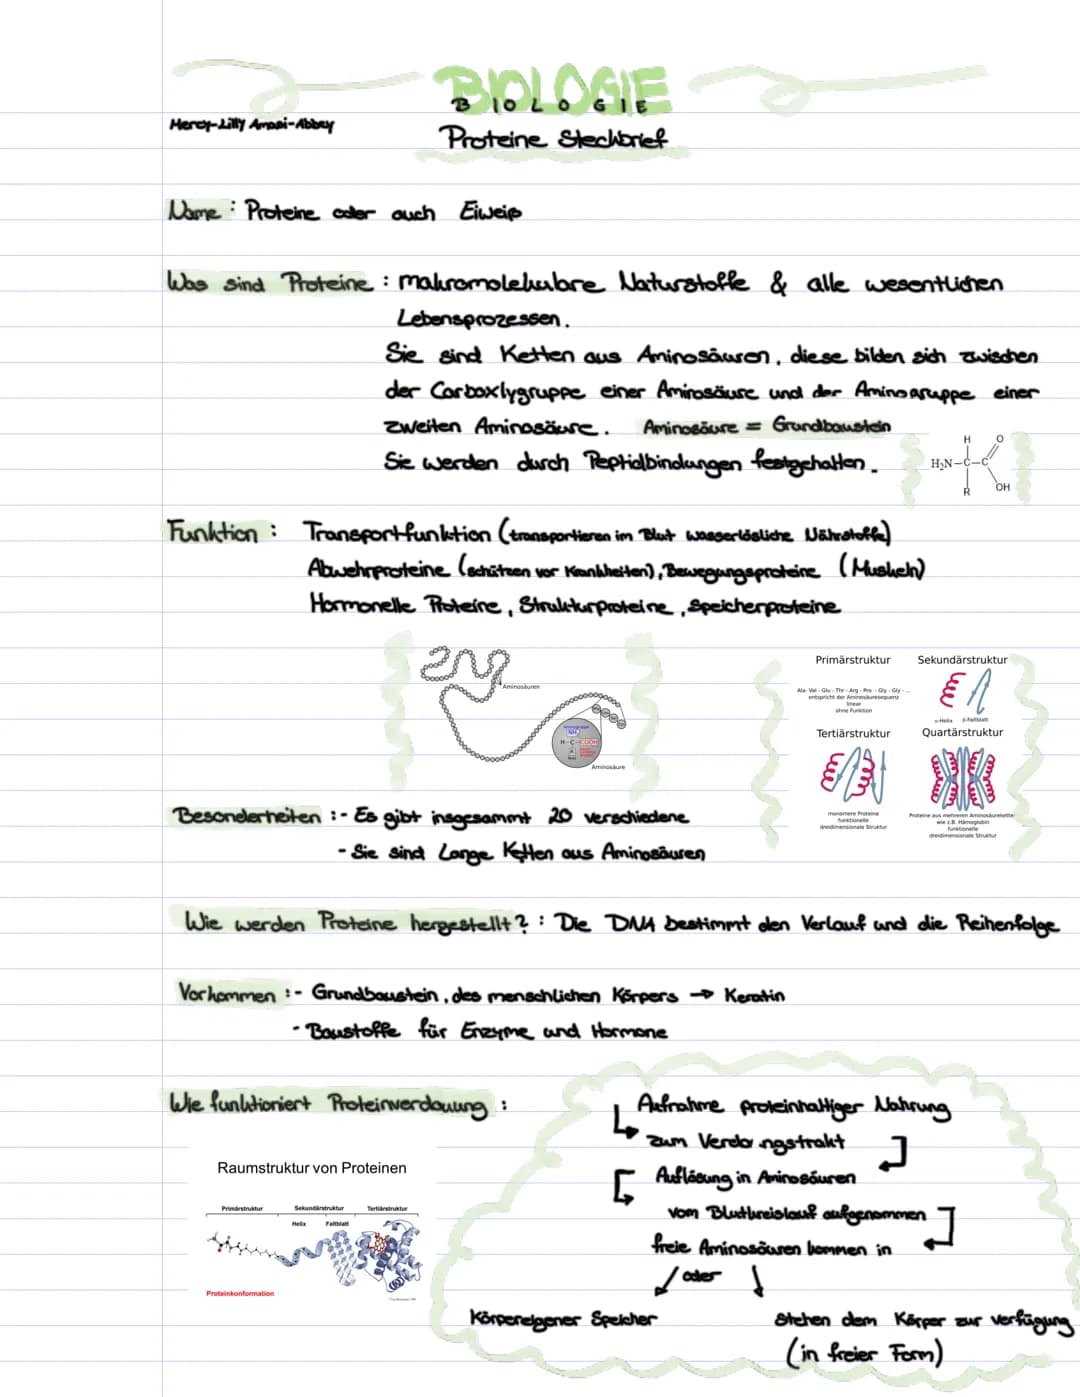 BIOLOGIE
BIOLOGIE
Mercy-Lilly Amasi-Abbey
Proteine Steckbrief
Name : Proteine oder auch Eiweiß
Was sind Proteine : makromolekulare Naturstoffe & alle wesentlichen
Lebensprozessen.
Sie sind Ketten aus Aminosäuren, diese bilden sich zwischen
der Carboxlygruppe einer Aminosäure und der Aminogruppe einer
zweiten Aminosäure. Aminosäure = Grundbaustein
Sie werden durch Peptidbindungen festgehalten.
H O
H₂N-C-C
R OH
Funktion : Transportfunktion (transportieren im Blut wasserlösliche Nährstoffe)
Abwehrproteine (schützen vor Krankheiten), Bewegungsproteine (Muskeln)
Hormonelle Proteine, Strukturproteine, Speicherproteine
Aminosäuren
NH
H-C-COOH
R
Aminosäure
Primärstruktur Sekundärstruktur
Ala- Val - Glu - Thr - Arg - Pro - Gly - Gly - ...
entspricht der Aminosäuresequenz
linear
ohne Funktion
α-Helix β-Faltblatt
Tertiärstruktur Quartärstruktur
monomere Proteine
funktionelle
dreidimensionale Struktur
Proteine aus mehreren Aminosäureketten
wie z.B. Hämoglobin
funktionelle
dreidimensionale Struktur
Besonderheiten :- Es gibt insgesammt 20 verschiedene
- Sie sind Lange Ketten aus Aminosäuren
Wie werden Proteine hergestellt? : Die DNA bestimmt den Verlauf und die Reihenfolge
Vorkommen :- Grundbaustein, des menschlichen Körpers → Keratin
- Baustoffe für Enzyme und Hormone
Wie funktioniert Proteinverdauung :
Aufnahme proteinhaltiger Nahrung
zum Verdauungstrakt
Auflösung in Aminosäuren
vom Blutkreislauf aufgenommen
freie Aminosäuren kommen in
oder
Körpereigener Speicher
stehen dem Körper zur verfügung
(in freier Form)
Raumstruktur von Proteinen
Primärstruktur Sekundärstruktur Tertiärstruktur
Helix Faltblatt
Proteinkonformation